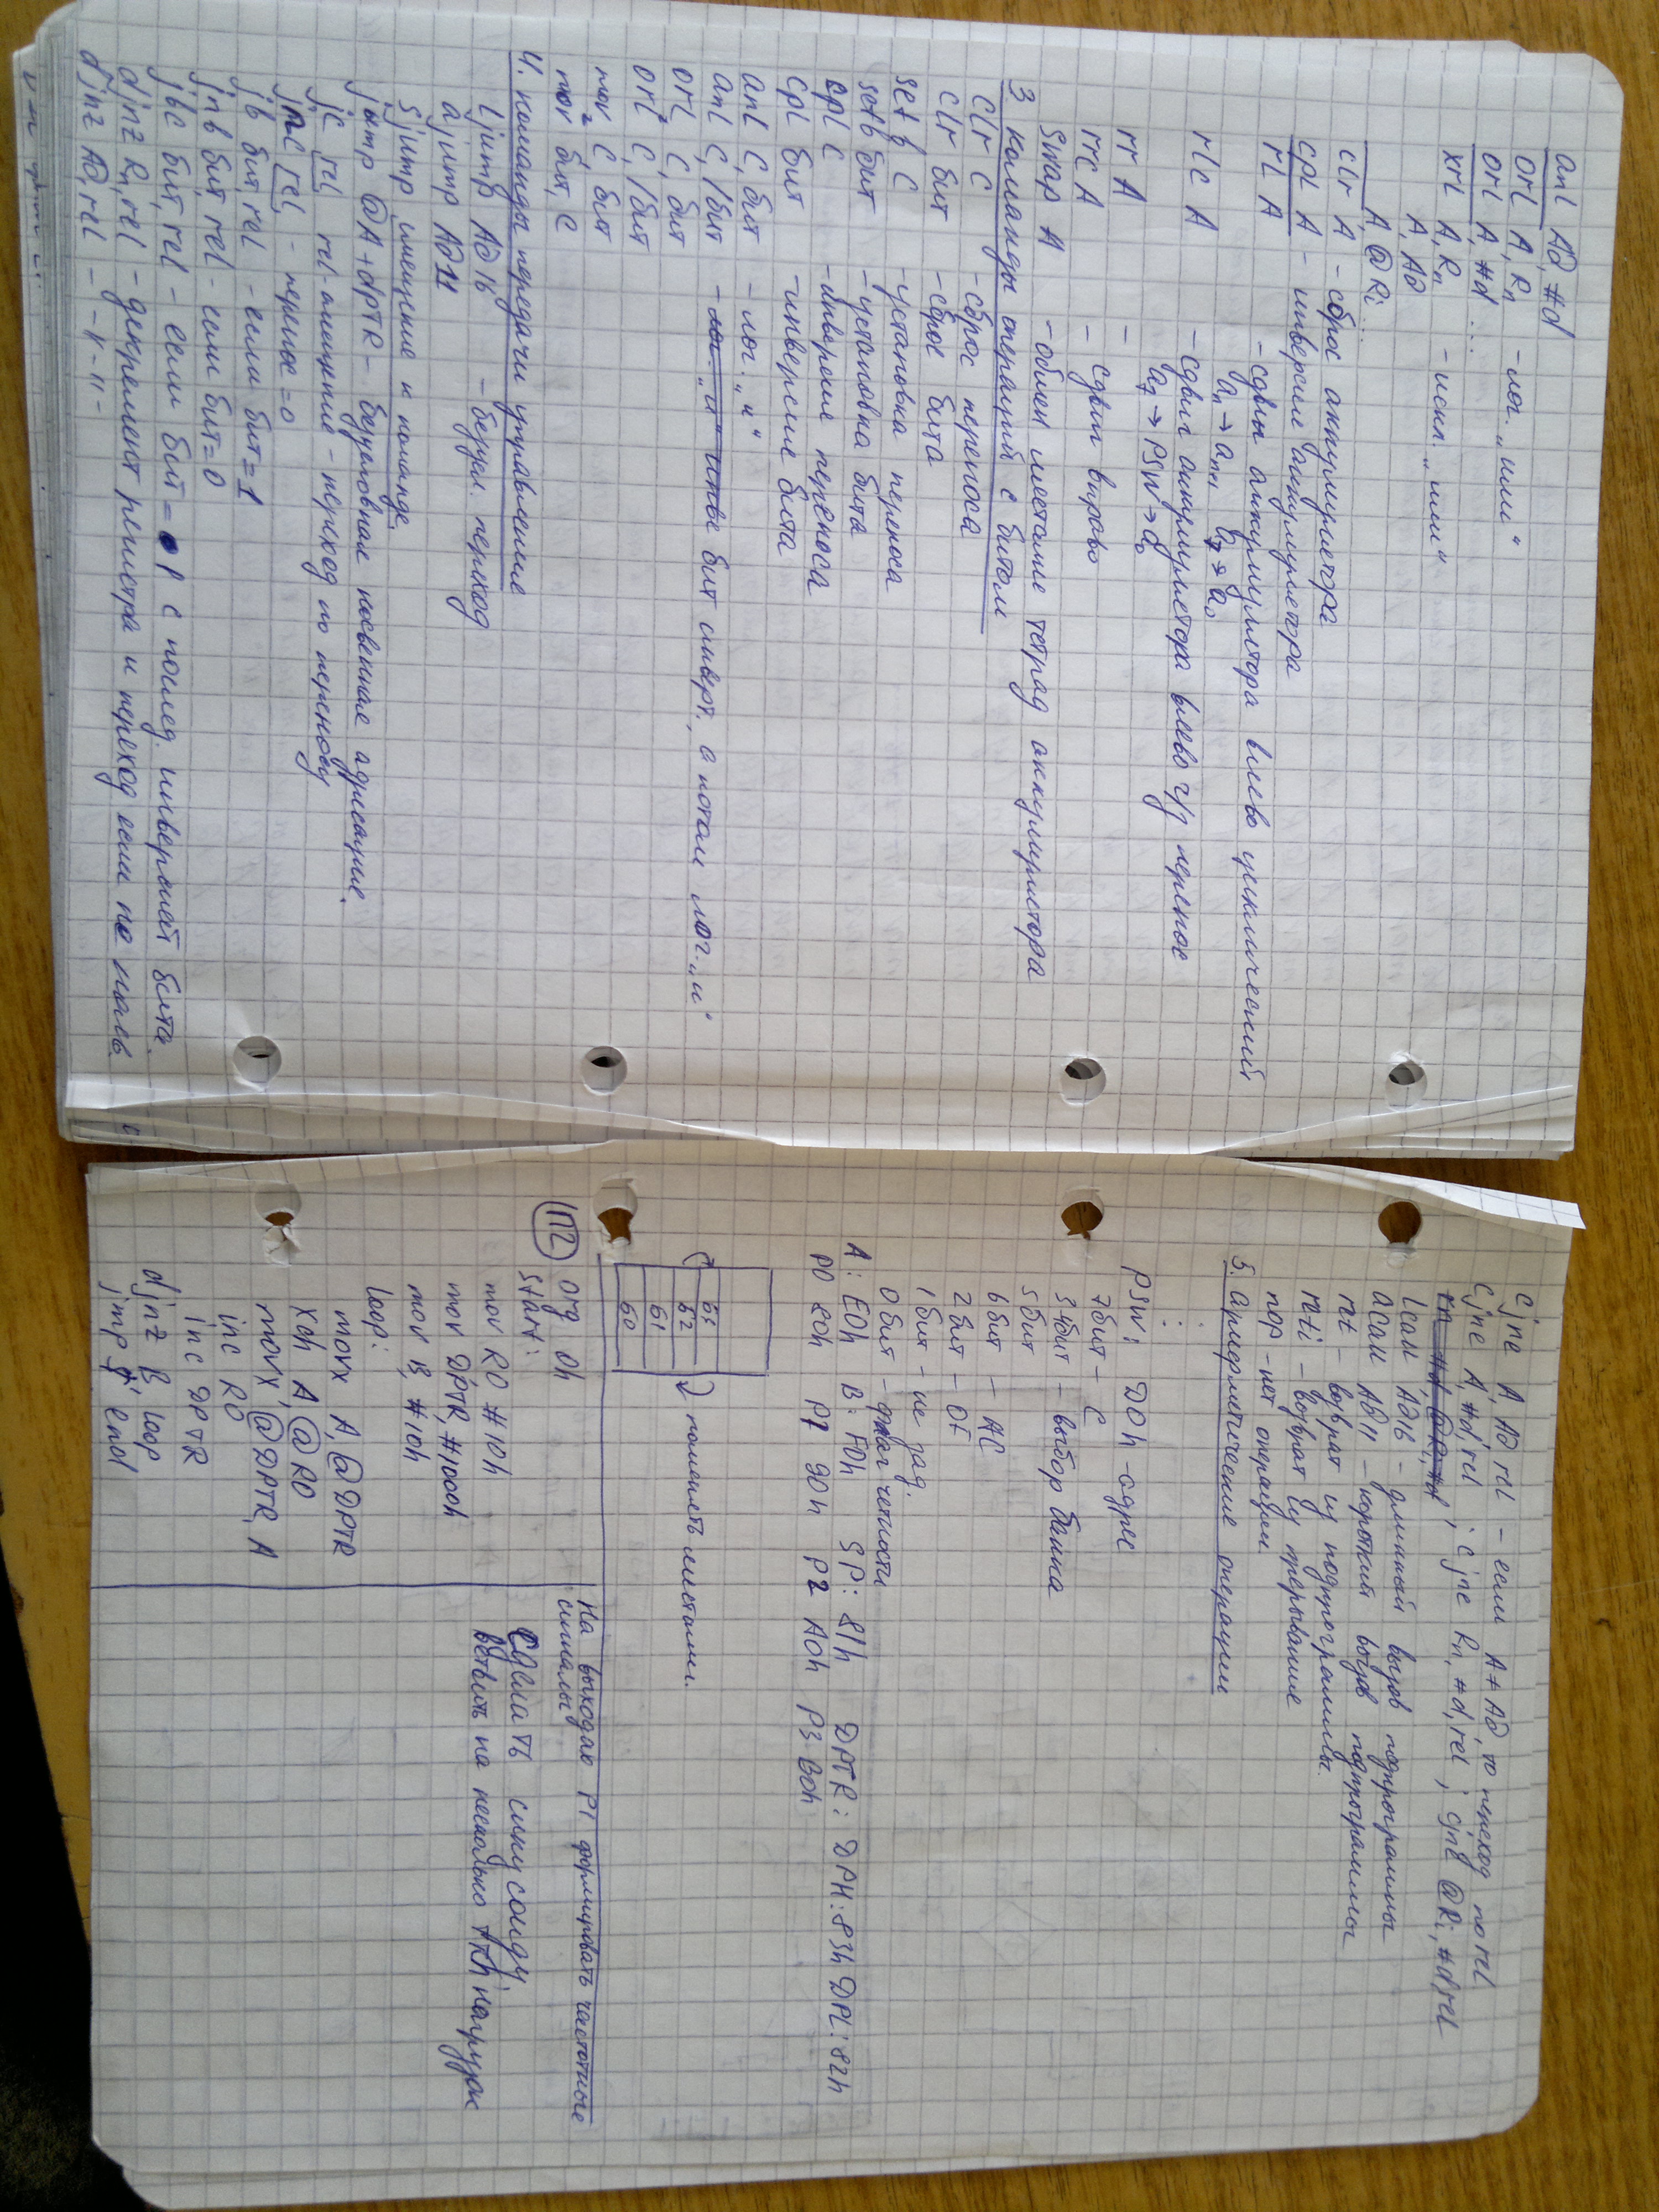 anl Ad, #d
orl A, Rn - лог. „или“
orl A, #d ...
xrl A, Rn - искл. „или“
A, Ad
A, @Ri ...
clr A - сброс аккумулятора
cpl A - инверсия аккумулятора
rl A - сдвиг аккумулятора влево циклический
an → an+1 a7 → a0
rlc A - сдвиг аккумулятора влево ч/з перенос
a7 → PSW → a0
rr A -
rrc A - сдвиг вправо
swap A - обмен местами тетрад аккумулятора
3 команды операций с битом
clr C - сброс переноса
clr бит - сброс бита
setb C - установка переноса
setb бит - установка бита
cpl C - инверсия переноса
cpl бит - инверсия бита
anl C, бит - лог. „и“
anl C, /бит - бит инверт, а потом лог. „и“
orl C, бит
orl C, /бит
mov C, бит
mov бит, C
4. команды передачи управления
ljump Ad 16 - безусл. переход
ajump Ad 11
sjump смещение к команде
jump @A+dPTR - безусловная косвенная адресация.
jc rel rel-смещение - переход по переносу
jnc rel, - перенос = 0
jb бит, rel - если бит = 1
jnb бит, rel - если бит = 0
jbc бит, rel - если бит = 1 с послед. инверсией бита.
djnz Rn, rel - декремент регистра и переход если не нолев.
djnz Ad, rel - - " -
cjne A, Ad rel - если A≠Ad, то переход по rel
cjne A, #d, rel ; cjne Rn, #d, rel ; cjne @Ri, #d, rel
lcall Ad16 - длинный вызов подпрограммы
acall Ad11 - короткий вызов подпрограммы
ret - возврат из подпрограммы.
reti - возврат из прерывание
nop - нет операции.
5. арифметические операции
PSW: D0h - адрес
7бит - C
3 4бит - выбор банка
5бит
6бит - AC
2бит - OF
1бит - не зад.
0бит - флаг четности
A: E0h B: F0h SP: 81h DPTR: DPH: 83h DPL: 82h
P0 80h P1 90h P2 A0h P3 B0h
63
62
61
60
поменять местами.
П2 org 0h
start:
mov R0 #10h
mov DPTR, #1000h
mov B, #10h
loop:
movx A, @DPTR
xch A, @R0
movx, @DPTR, A
inc R0
inc DPTR
djnz B, loop
jmp $; end
На выходах P1 формировать частотные
сигналы
Сделать синусоиду,
на несколько